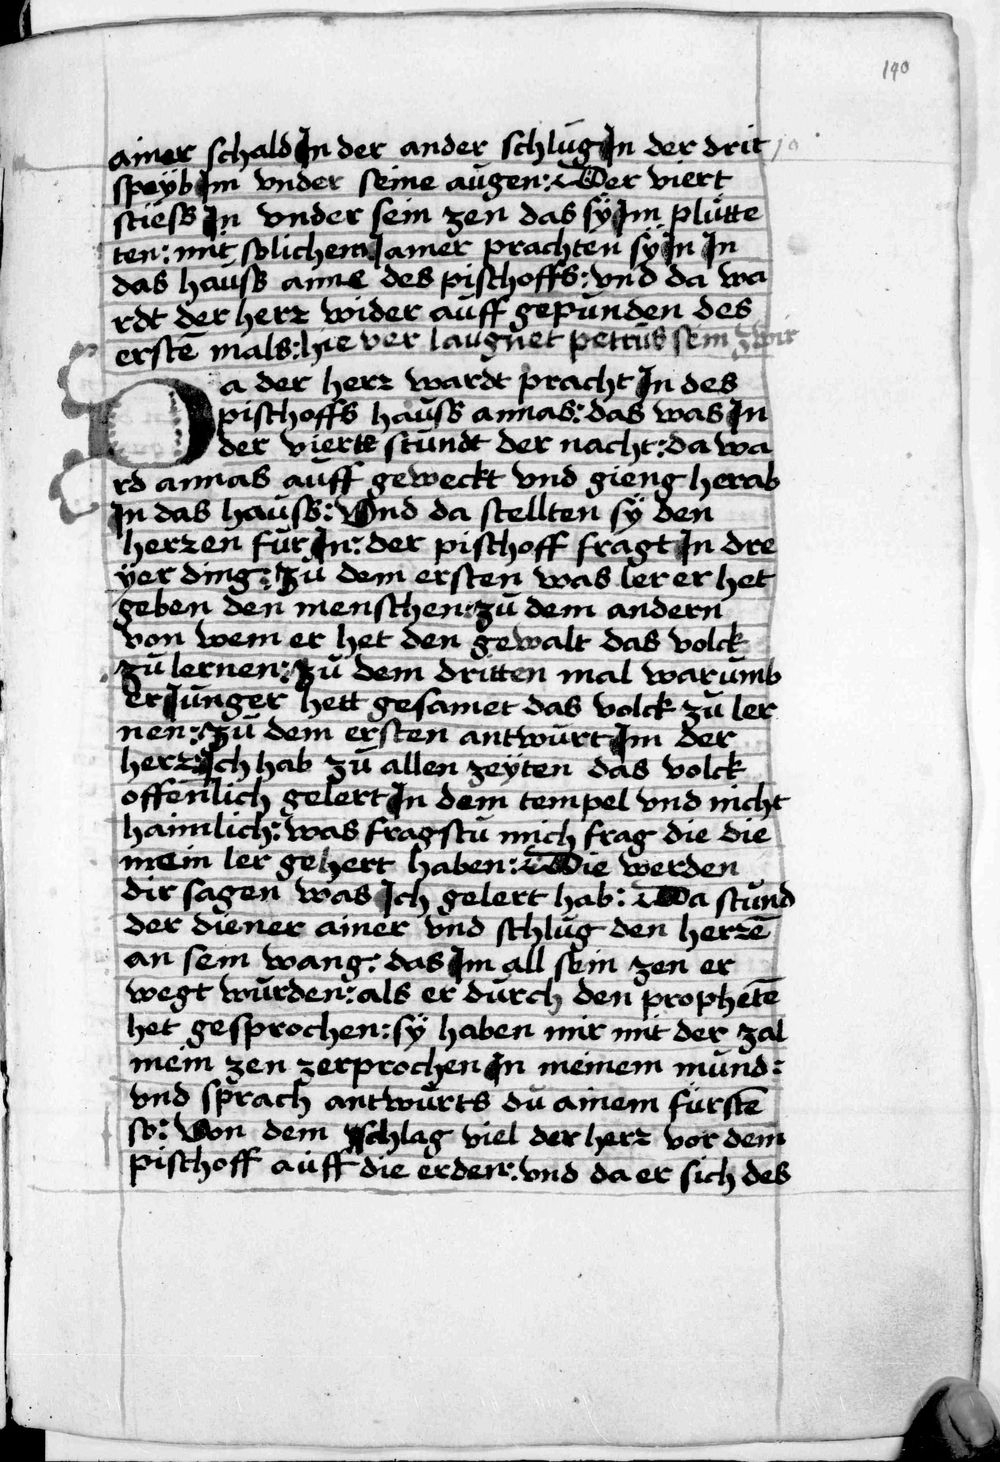 190
ainer schald In der ander schlůg In der drit
speÿb Im vnder seine augen: Der viert
stiess In vnder sein zen das sÿ Im plůtte
ten: mit solichem Iamer prachten sÿ In In
das hauss anne des pischoffs: vnd da wa
rdt der herr wider auff gepunden des
erstē mals: hie ver laugnet petrus sein zwir
Da der herr wardt pracht In des
pischoffs hauss annas: das was In
der viertt stundt der nacht: da wa
rd annas auff geweckt vnd gieng herab
In das hauss: Vnd da stellten sÿ den
herren fůr In: der pischoff fragt In dre
ÿer ding: Zů dem ersten was ler er het
geben den menschen: zů dem andern
von wem er het den gewalt das volck
zů lernen: Zů dem dritten mal warumb
er Iunger hett gesamet das volck zů ler
nen: Zů dem ersten antwurt Im der
herr: Ich hab zů allen zeÿten das volck
offenlich gelert In dem tempel vnd nicht
haimlich: was fragstu mich frag die die
mein ler gehert haben: Die werden
dir sagen was Ich gelert hab: Da stůnd
der diener ainer vnd schlůg den herrē
an sein wang: das Im all sein zen er
wegt wurden: als er durch den prophetē
het gesprochen: sÿ haben mir mit der zal
mein zen zerprochen In meinem mund:
vnd sprach antwurts du ainem fürstē
so: Von dem schlag viel der herr vor dem
pischoff auff die erden: vnd da er sich des